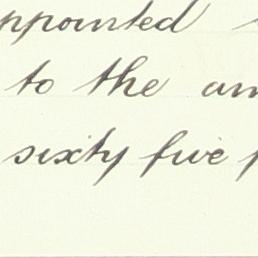 ppointed
to the am
sixty five p